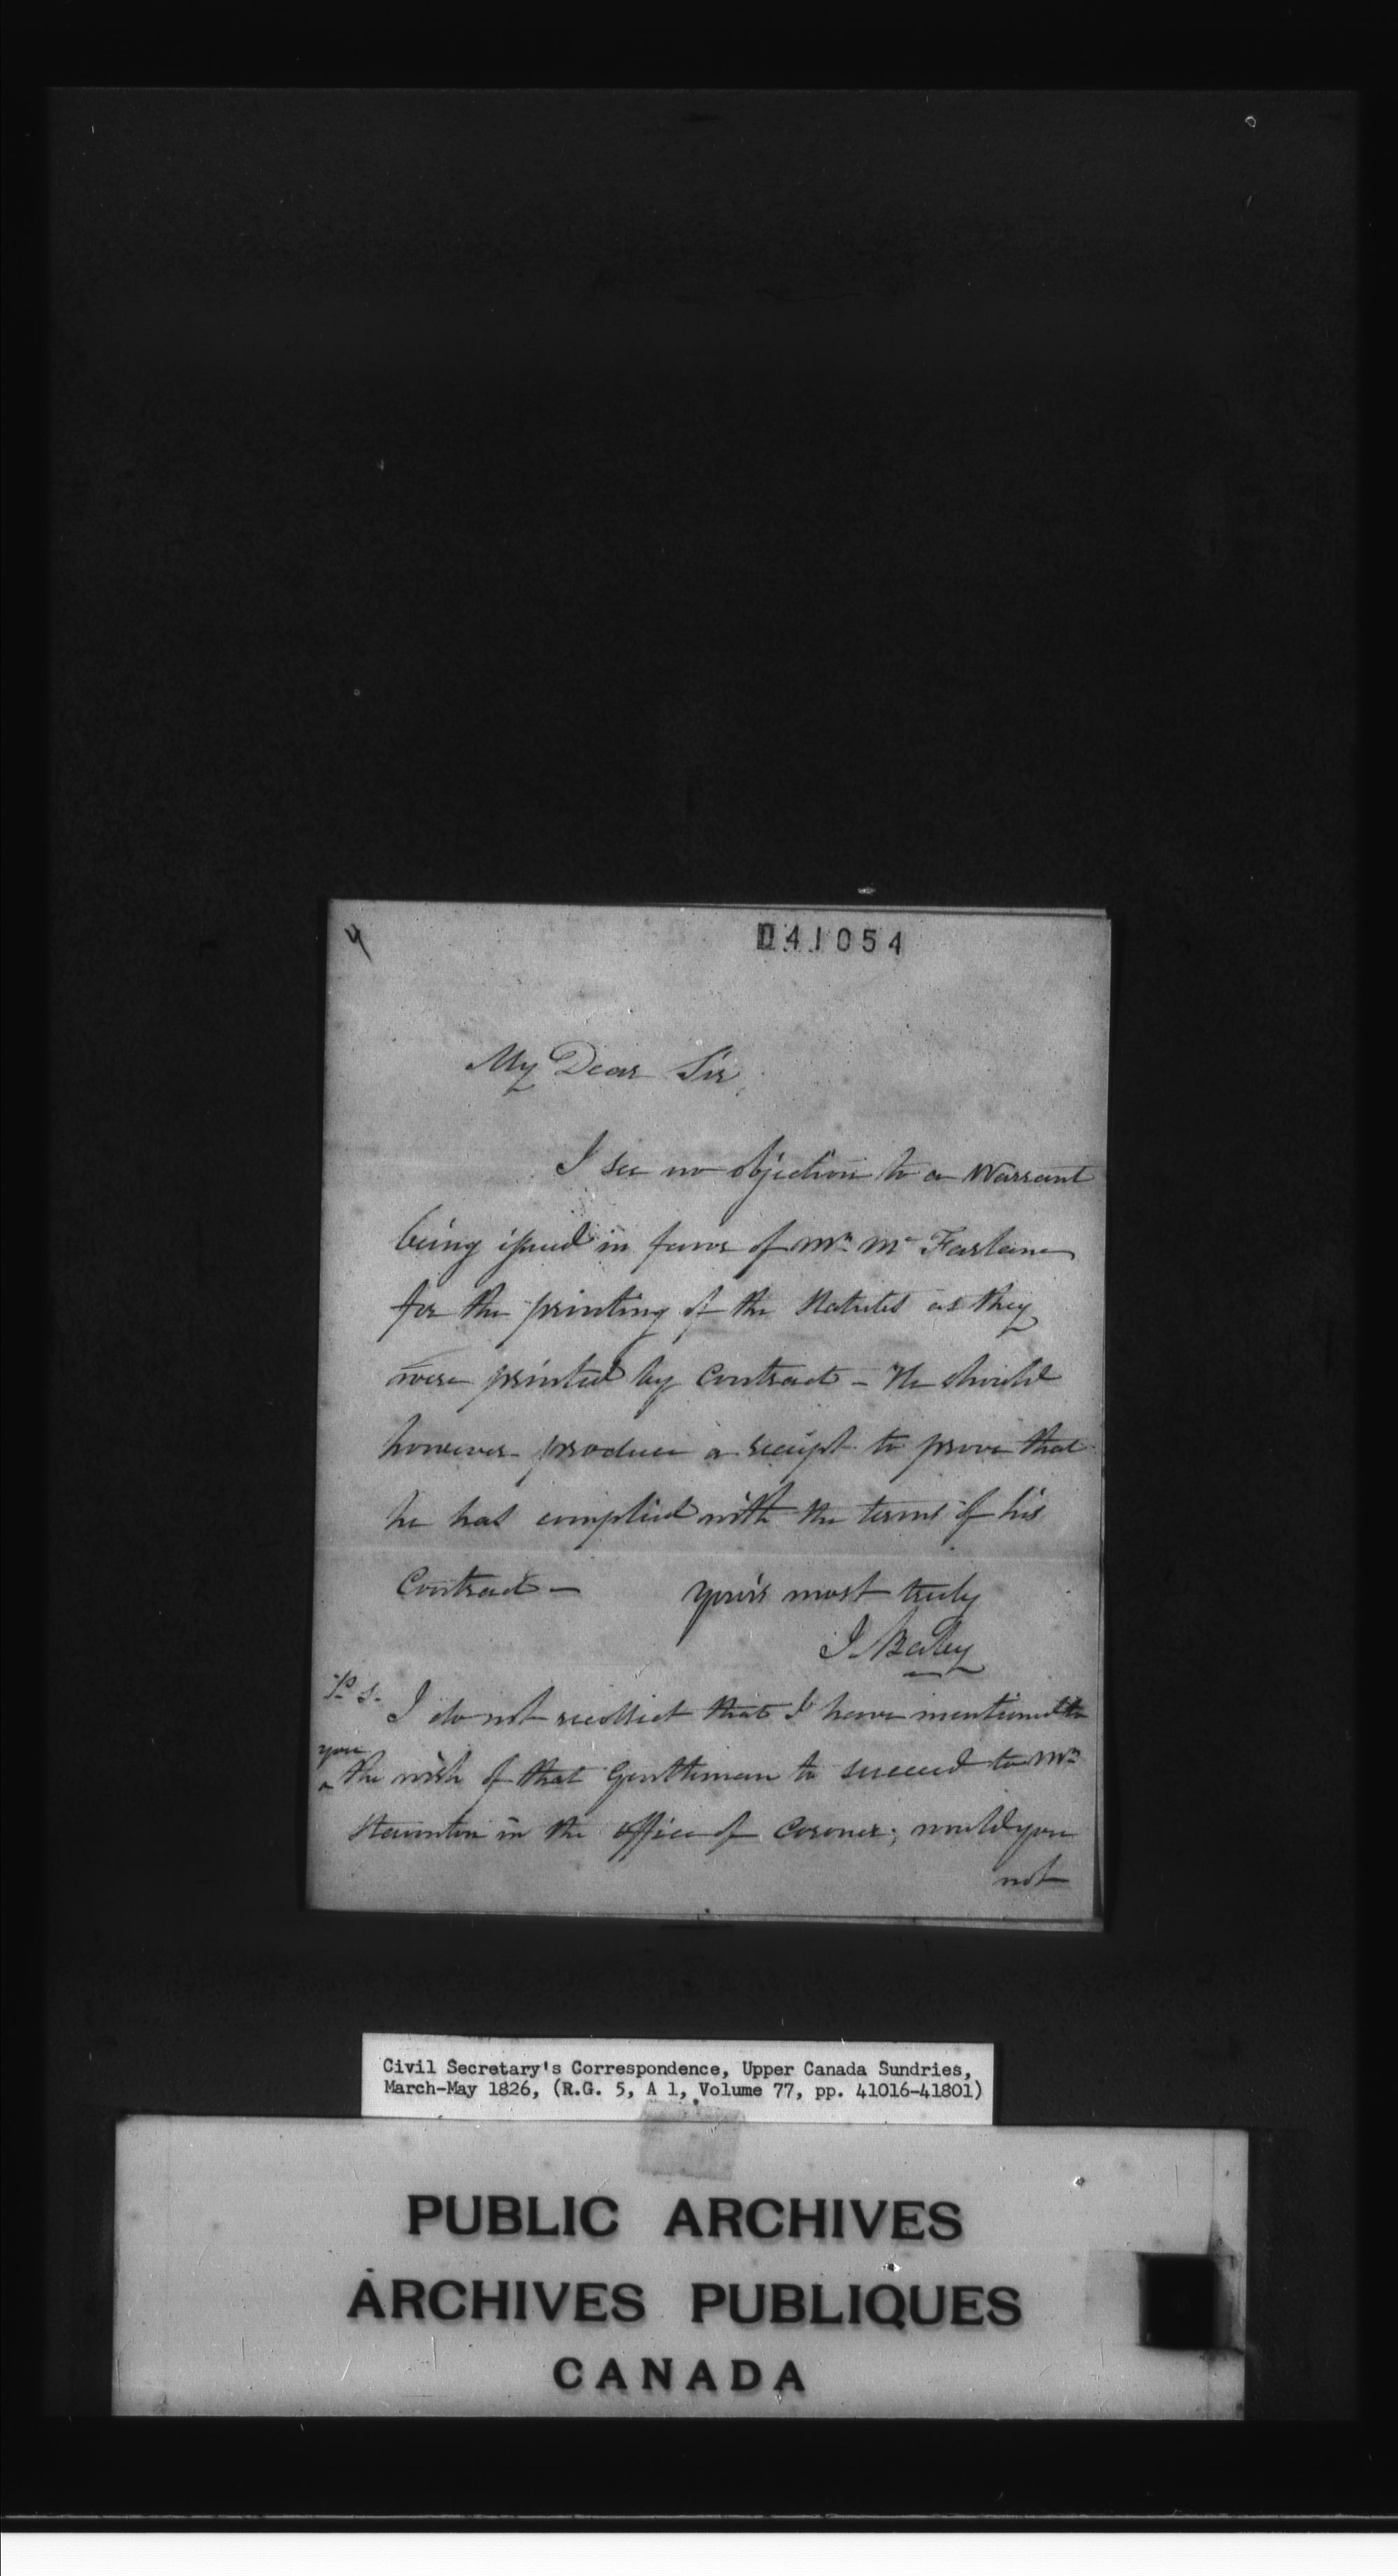 041054
My Dear Sir,
I see no objection to a Warrant
being issued in favor of Mr. Mc Farlane
for the printing of the Statutes as they
were printed by Contract - He should
however produce a receipt to prove that
he has complied with the terms of his
Contract -
yours most truly
J. Baby
P.S. I do not recollect that I have mentioned to
you
^ the wish of that Gentleman to succeed to Mr.
Staunton in the office of Coroner; would you
not
Civil Secretary's Correspondence, Upper Canada Sundries,
March-May 1826, (R.G. 5, A 1, Volume 77, pp. 41016-41801)
PUBLIC ARCHIVES
ARCHIVES PUBLIQUES
CANADA